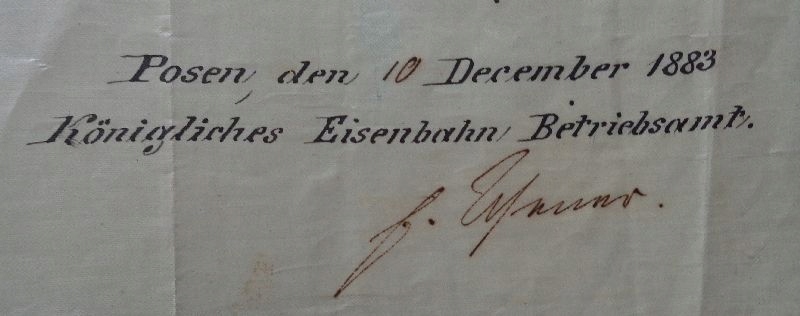 Posen, den 10 December 1883
Königliches Eisenbahn Betriebsamt.